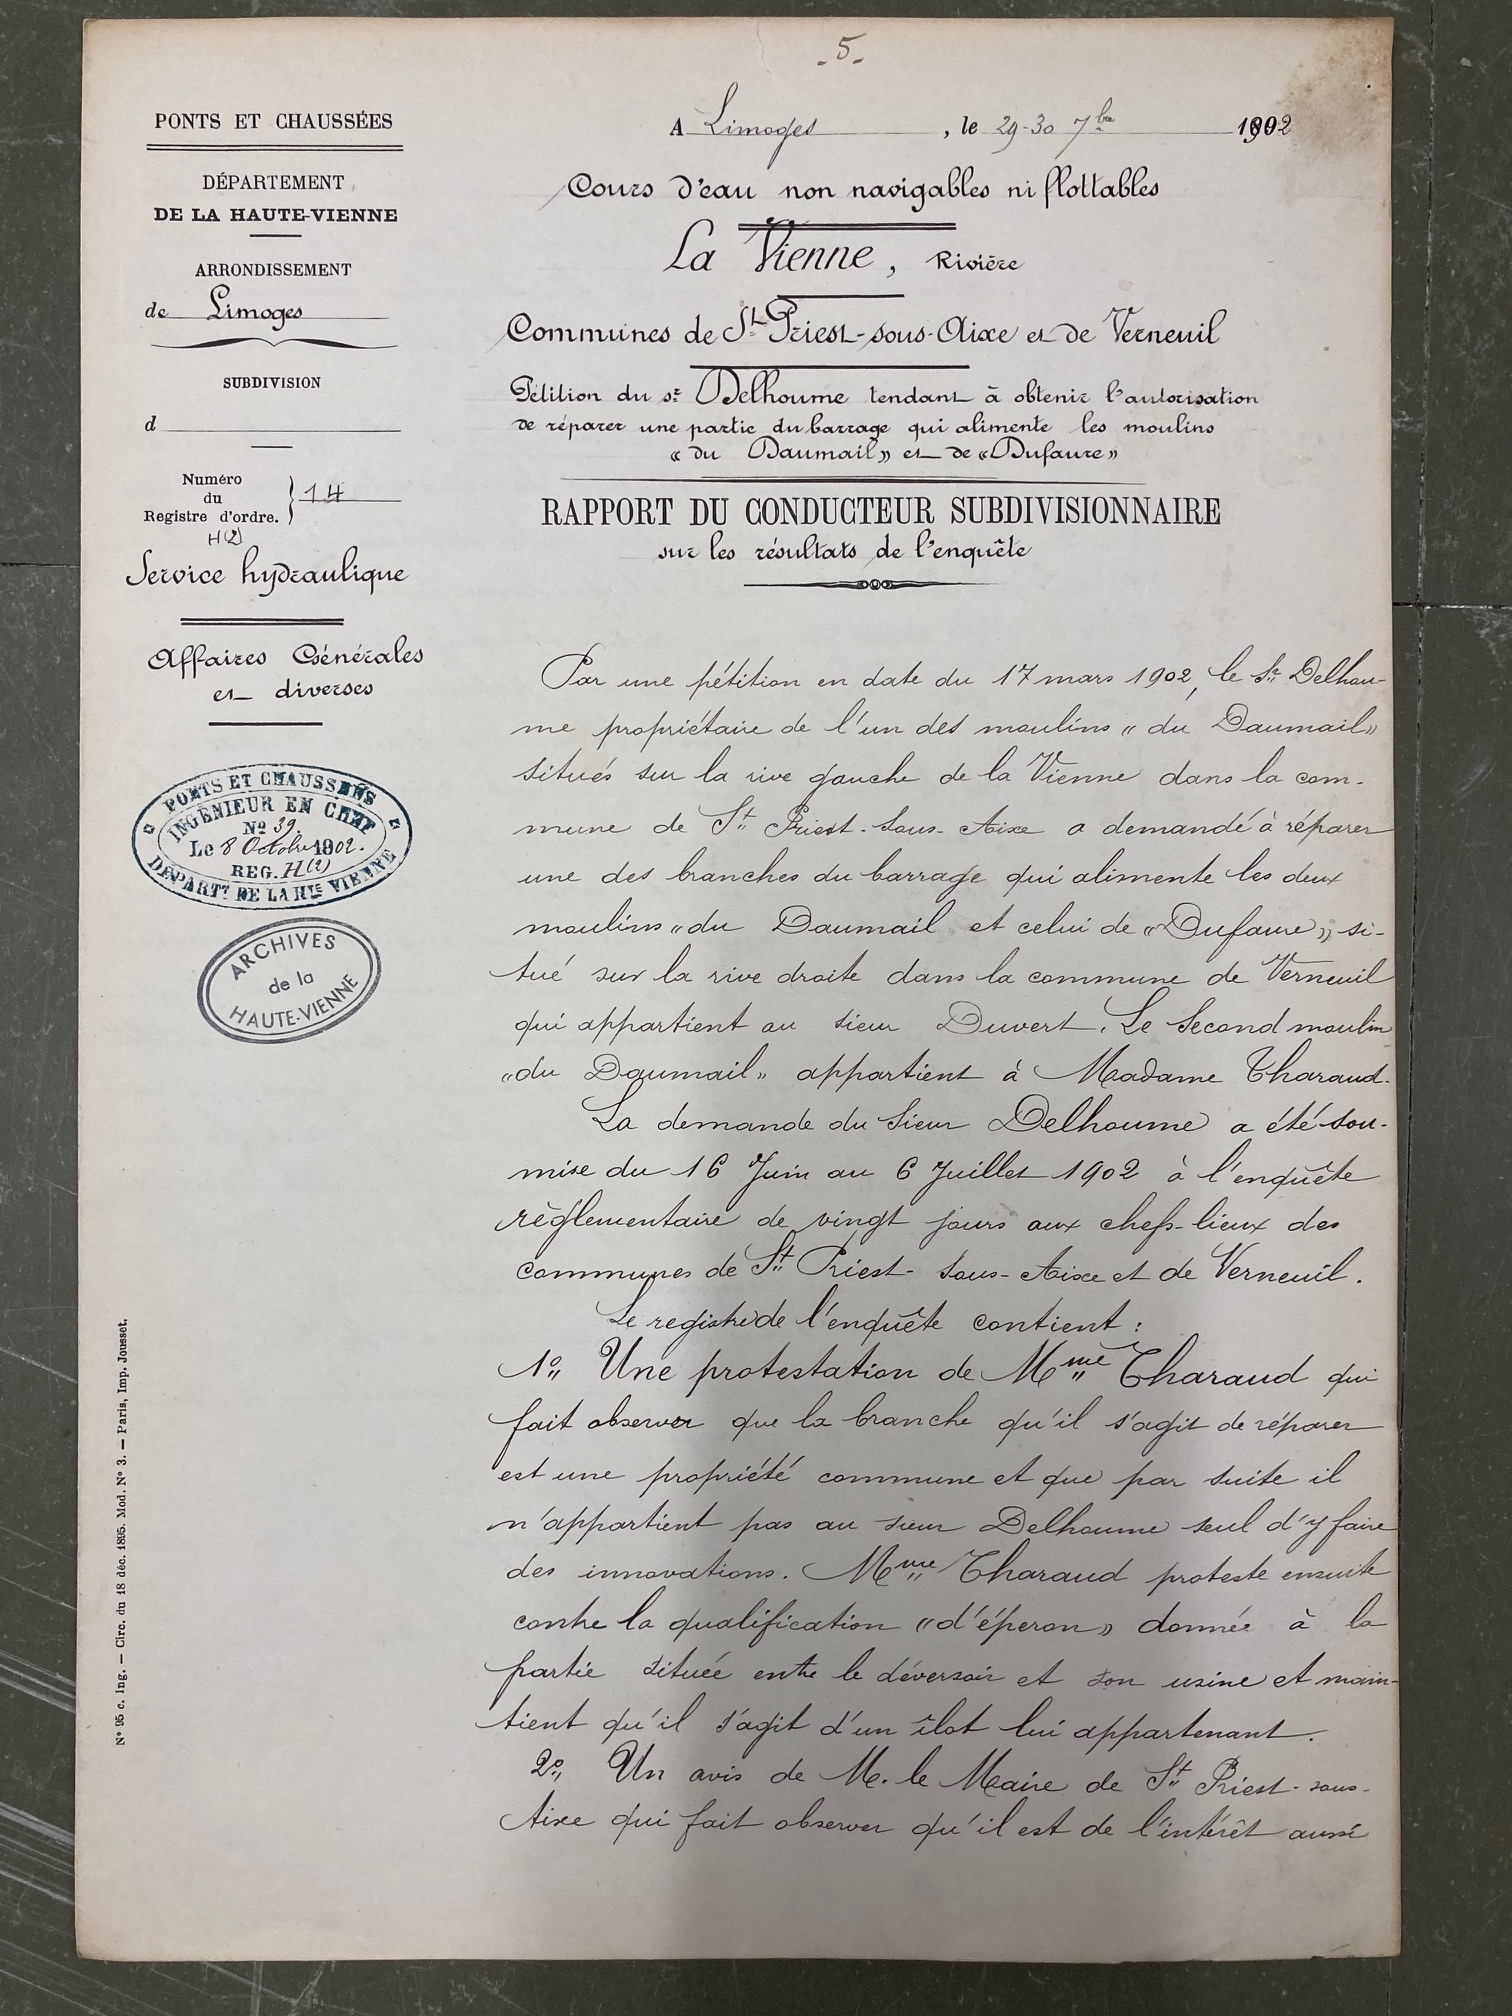 - 5 -
PONTS ET CHAUSSÉES
DÉPARTEMENT
DE LA HAUTE-VIENNE
ARRONDISSEMENT
de Limoges
SUBDIVISION
d
Numéro
du
Registre d'ordre.
14
H(2)
Service hydraulique
Affaires Générales
et diverses
PONTS ET CHAUSSÉES
INGÉNIEUR EN CHEF
No 39
Le 8 Octobre 1902.
REG. H(2)
DÉPARTT DE LA HTE VIENNE
ARCHIVES
de la
HAUTE-VIENNE
No 95 c. Ing. — Circ. du 18 déc. 1895. Mod. No 3. — Paris, Imp. Jousset.
A Limoges, le 29-30 7bre 1902
Cours d'eau non navigables ni flottables
La Vienne, Rivière
Communes de St Priest-sous-Aixe et de Verneuil
Pétition du sr Delhoume tendant à obtenir l'autorisation
de réparer une partie du barrage qui alimente les moulins
« du Daumail » et de « Dufaure »
RAPPORT DU CONDUCTEUR SUBDIVISIONNAIRE
sur les résultats de l'enquête
Par une pétition en date du 17 mars 1902, le Sr Delhou-
me propriétaire de l'un des moulins « du Daumail »
situés sur la rive gauche de la Vienne dans la com-
mune de St Priest-sous-Aixe a demandé à réparer
une des branches du barrage qui alimente les deux
moulins « du Daumail et celui de « Dufaure », si-
tué sur la rive droite dans la commune de Verneuil
qui appartient au sieur Duvert. Le second moulin
« du Daumail » appartient à Madame Tharaud.
La demande du sieur Delhoume a été sou-
mise du 16 Juin au 6 Juillet 1902 à l'enquête
règlementaire de vingt jours aux chefs-lieux des
communes de St Priest-sous-Aixe et de Verneuil.
Le registre de l'enquête contient :
1o Une protestation de Mme Tharaud qui
fait observer que la branche qu'il s'agit de réparer
est une propriété commune et que par suite il
n'appartient pas au sieur Delhoume seul d'y faire
des innovations. Mme Tharaud proteste ensuite
contre la qualification « d'éperon » donnée à la
partie située entre le déversoir et son usine et main-
tient qu'il s'agit d'un îlot lui appartenant.
2o Un avis de M. le Maire de St Priest-sous-
Aixe qui fait observer qu'il est de l'intérêt aussi